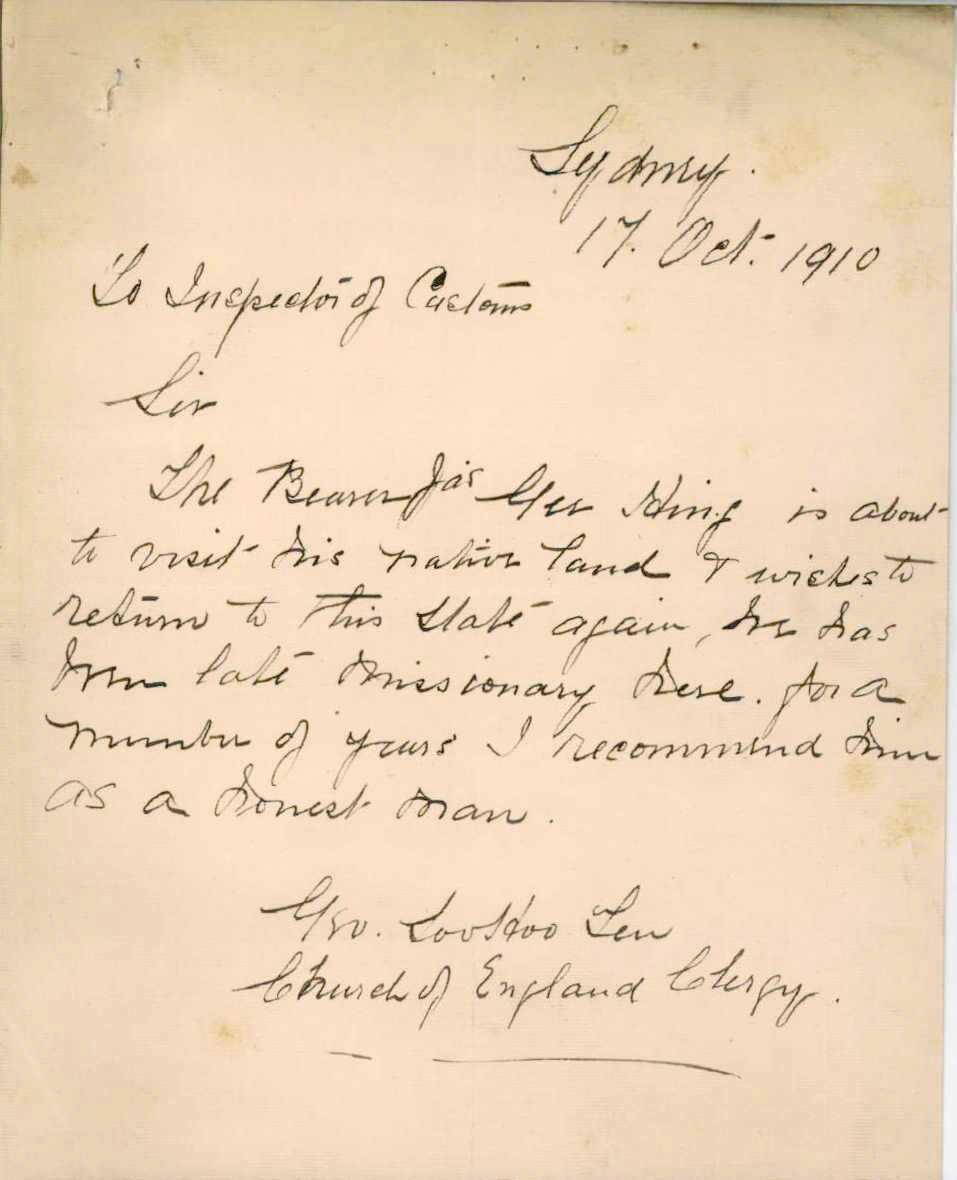 Sydney.
17. Oct. 1910
To Inspector of Customs
Sir
The Bearer Jas Gee Hing is about
to visit his native land & wishes to
return to this state again, he has
been late missionary here. for a
number of years I recommend him
as a honest man.
Geo. Soo Hoo Ten
Church of England Clergy.